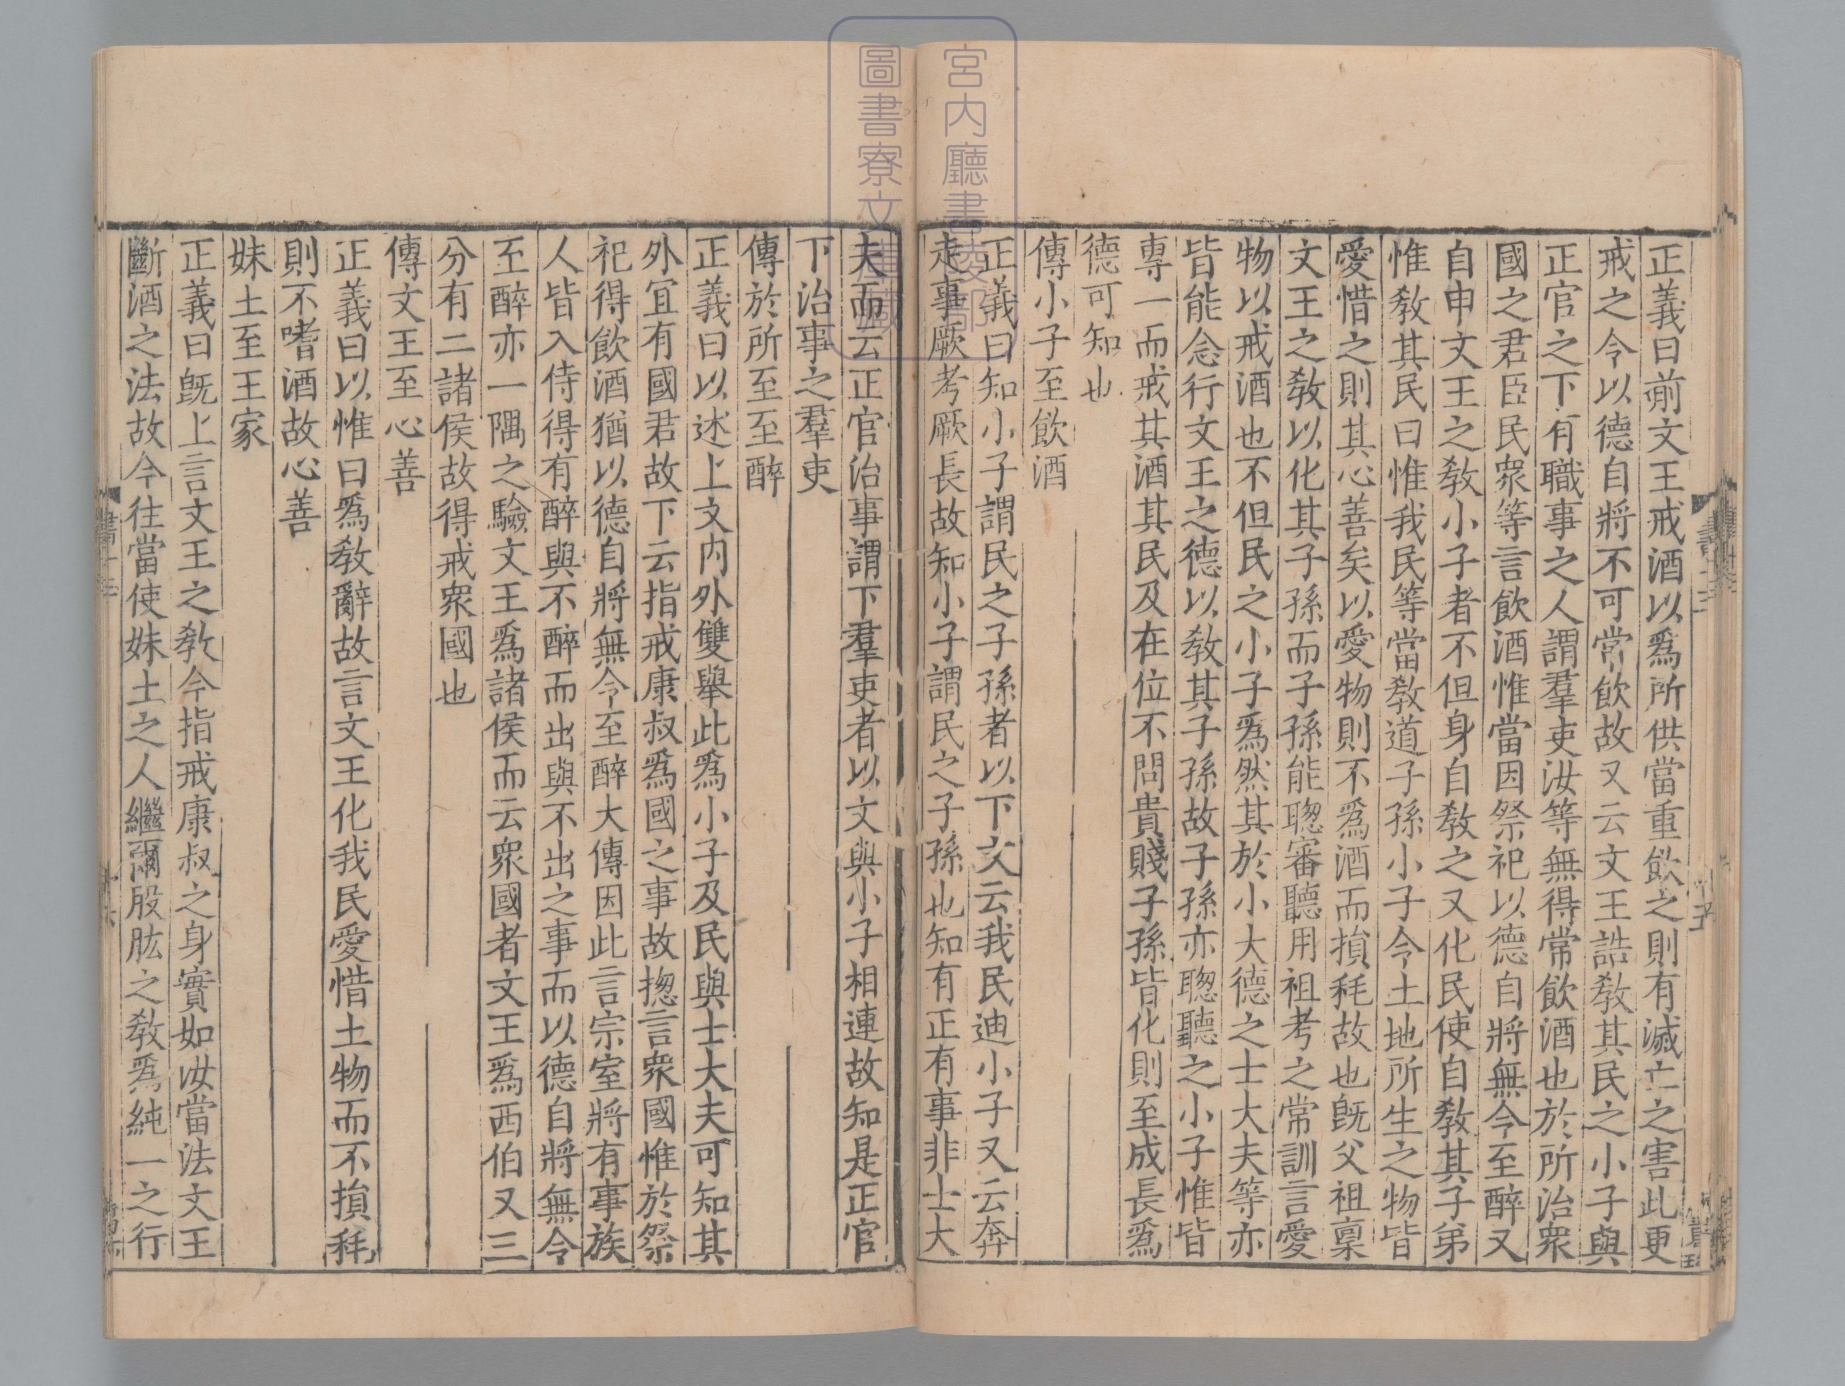 正義曰前文王戒酒以爲所供當重飲之則有滅亡之害此更
戒之令以德自將不可常飲故又云文王誥敎其民之小子與
正官之下有職事之人謂羣吏汝等無得常飲酒也於所治衆
國之君臣民衆等言飲酒惟當因祭祀以德自將無令至醉又
自申文王之敎小子者不但身自敎之又化民使自敎其子弟
惟敎其民曰惟我民等當敎道子孫小子令土地所生之物皆
愛惜之則其心善矣以愛物則不爲酒而損秏故也旣父祖稟
文王之敎以化其子孫而子孫能聦審聽用祖考之常訓言愛
物以戒酒也不但民之小子爲然其於小大德之士大夫等亦
皆能念行文王之德以敎其子孫故子孫亦聦聽之小子惟皆
專一而戒其酒其民及在位不問貴賤子孫皆化則至成長爲
德可知也
傳小子至飲酒
正義曰知小子謂民之子孫者以下文云我民迪小子又云奔
走事厥考厥長故知小子謂民之子孫也知有正有事非士大
夫而云正官治事謂下羣吏者以文與小子相連故知是正官
下治事之羣吏
傳於所至至醉
正義曰以述上文内外雙舉此爲小子及民與士大夫可知其
外宜有國君故下云指戒康叔爲國之事故揔言衆國惟於祭
祀得飲酒猶以德自將無令至醉大傳因此言宗室將有事族
人皆入侍得有醉與不醉而出與不出之事而以德自將無令
至醉亦一隅之驗文王爲諸侯而云衆國者文王爲西伯又三
分有二諸侯故得戒衆國也
傳文王至心善
正義曰以惟曰爲敎辭故言文王化我民愛惜土物而不損秏
則不嗜酒故心善
妹土至王家
正義曰旣上言文王之敎今指戒康叔之身實如汝當法文王
斷酒之法故今往當使妹土之人繼爾股肱之敎爲純一之行
書十三
十五
書十三
十六
宮内廳書陵部
圖書寮文庫藏